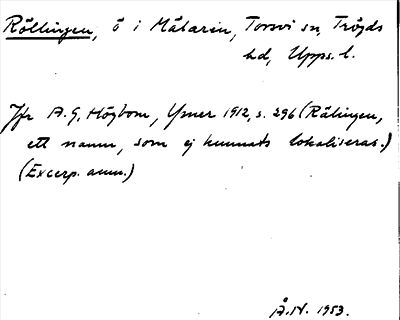 Röllingen, ö i Mälaren, Torsvi sn, Trögds
hd, Upps. l.
Jfr A. G. Högbom, Ymer 1912, s. 296 (Rälingen,
ett namn, som ej kunnats lokaliseras.)
(Excerp. anm.)
Å. N. 1953.